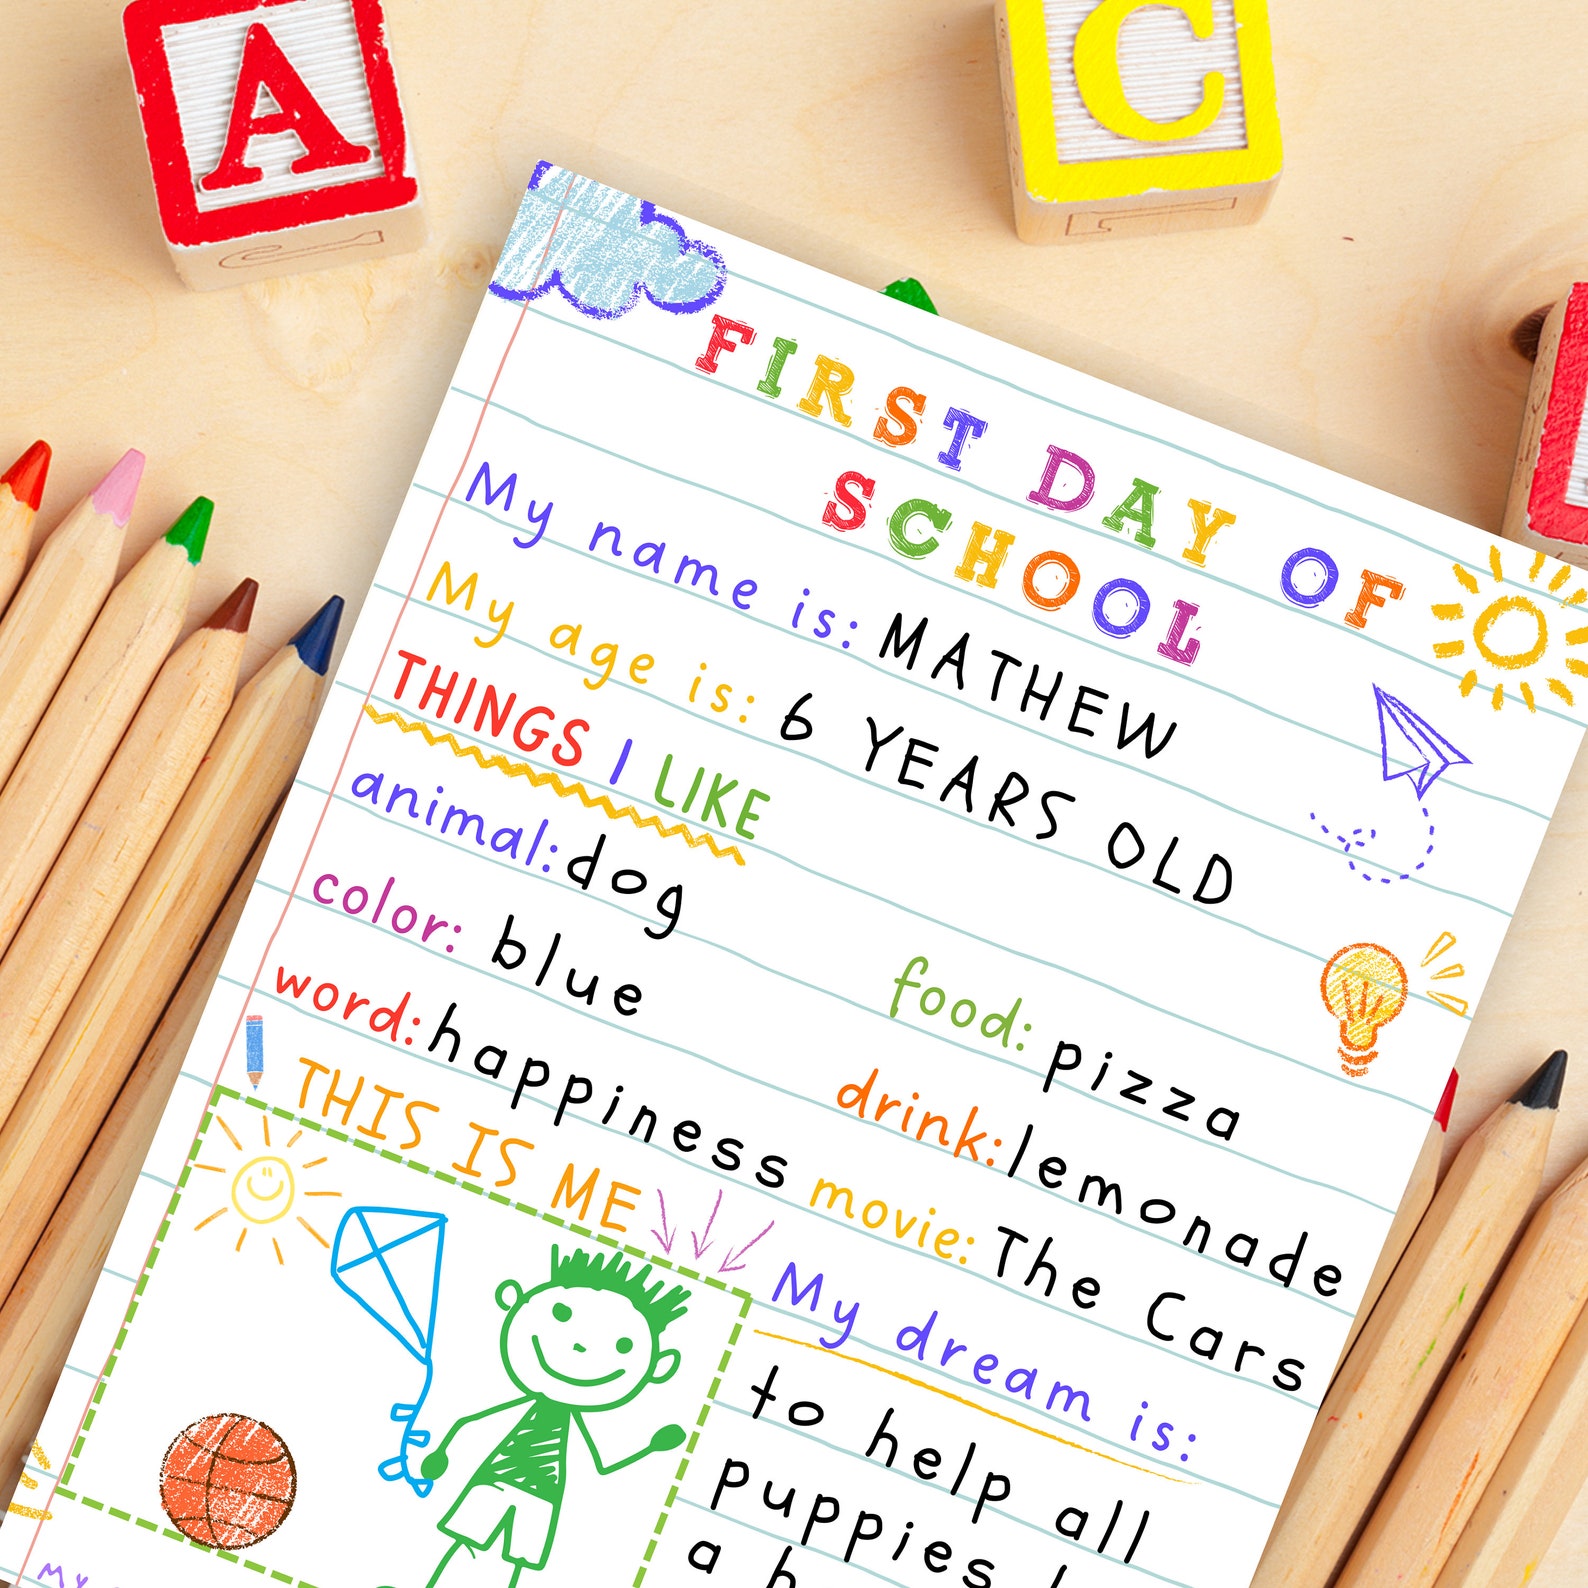 A
C
FIRST DAY OF
SCHOOL
My name is: MATHEW
My age is: 6 YEARS OLD
THINGS I LIKE
animal: dog
color: blue
word: happiness
food: pizza
drink: lemonade
movie: The Cars
THIS IS ME
My dream is:
to help all
puppies
a
My